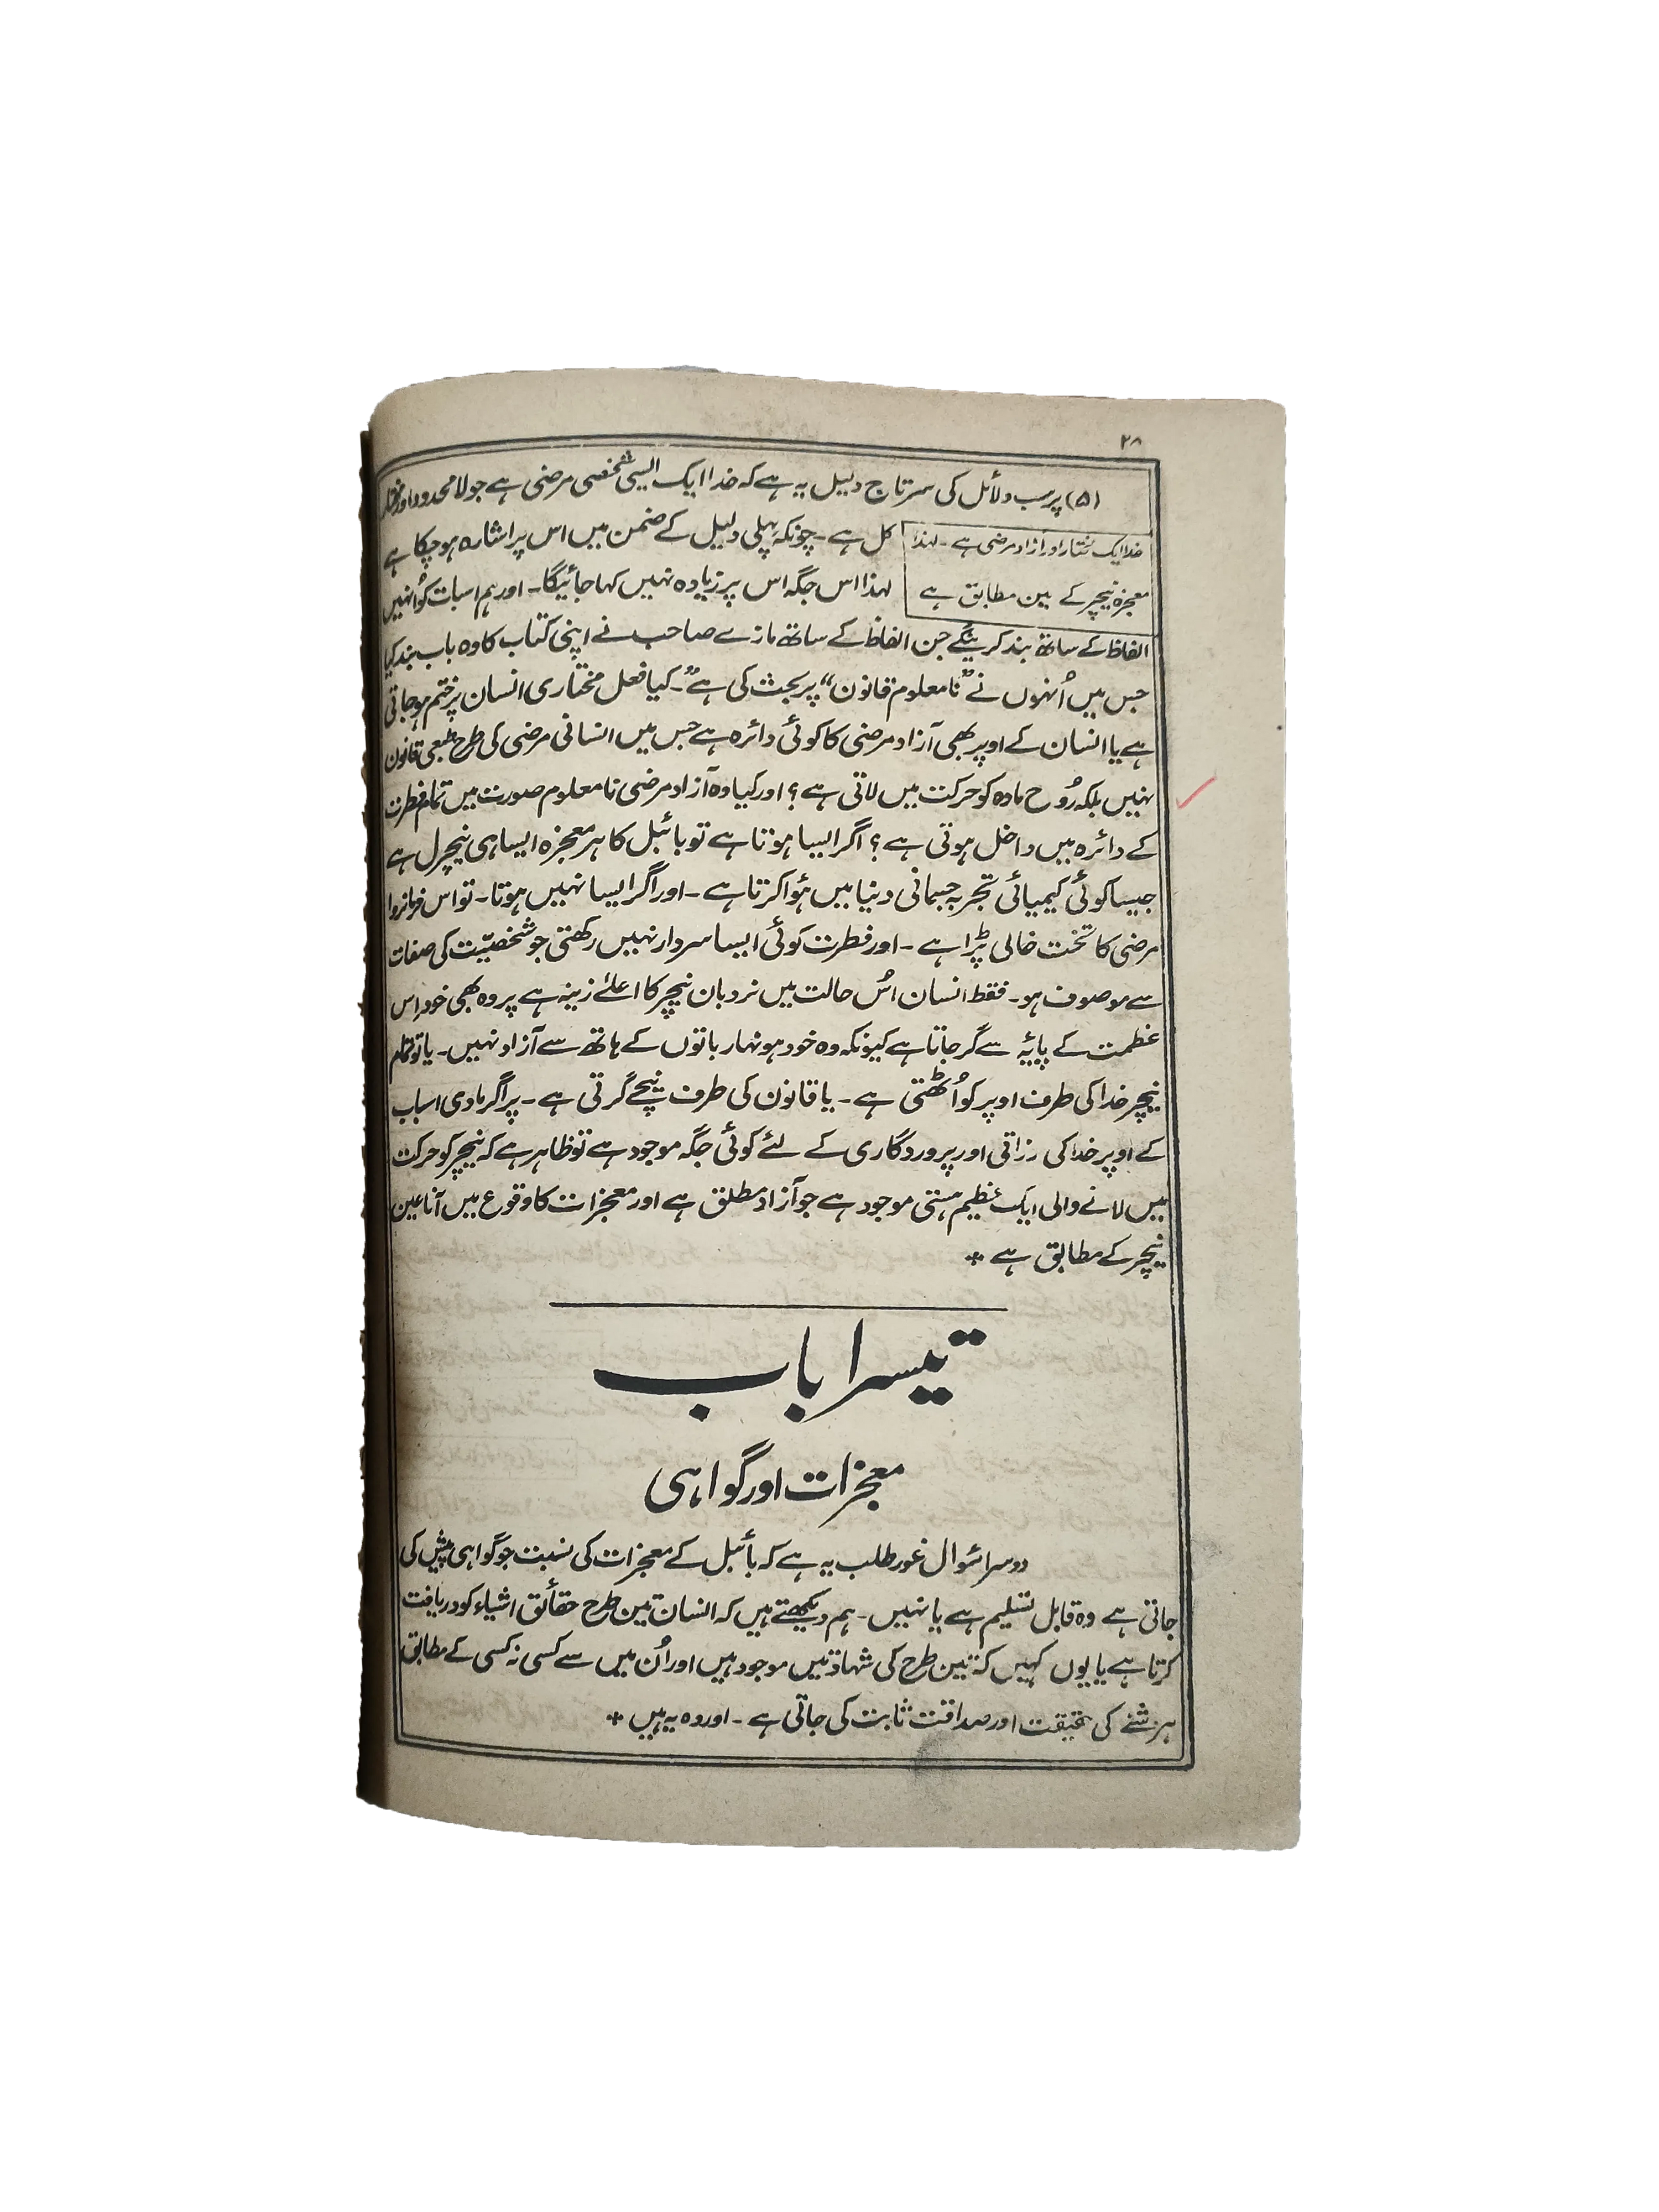 ۲۸
(۵) پر سب دلائل کی سرتاج دلیل یہ ہے کہ خدا ایک ایسی شخصی مرضی ہے جو لامحدود اور مختار
خدا ایک مختار اور آزاد مرضی ہے ۔ لہذا
معجزہ نیچر کے عین مطابق ہے
کل ہے ۔ چونکہ پہلی دلیل کے ضمن میں اس پر اشارہ ہو چکا ہے
لہذا اس جگہ اس پر زیادہ نہیں کہا جائیگا ۔ اور ہم اسبات کو اُنہیں
الفاظ کے ساتھ بند کرینگے جن الفاظ کے ساتھ مازے صاحب نے اپنی کتاب کا وہ باب بند کیا
جس میں اُنہوں نے ”نامعلوم قانون“ پر بحث کی ہے ”۔ کیا فعل مختاری انسان پر ختم ہو جاتی
ہے یا انسان کے اوپر بھی آزاد مرضی کا کوئی دائرہ ہے جس میں انسانی مرضی کی طرح طبعی قانون
نہیں بلکہ رُوح مادہ کو حرکت میں لاتی ہے ؟ اور کیا وہ آزاد مرضی نامعلوم صورت میں تمام فطرت
کے دائرہ میں داخل ہوتی ہے ؟ اگر ایسا ہوتا ہے تو بائبل کا ہر معجزہ ایسا ہی نیچرل ہے
جیسا کوئی کیمیائی تجربہ جسمانی دنیا میں ہؤا کرتا ہے ۔ اور اگر ایسا نہیں ہوتا ۔ تو اس فرمانروا
مرضی کا تخت خالی پڑا ہے ۔ اور فطرت کوئی ایسا سردار نہیں رکھتی جو شخصیّت کی صفات
سے موصوف ہو ۔ فقط انسان اُس حالت میں نردبان نیچر کا اعلےٰ زینہ ہے پر وہ بھی خود اِس
عظمت کے پایہٴ سے گر جاتا ہے کیونکہ وہ خود ہونہار باتوں کے ہاتھ سے آزاد نہیں ۔ یا تو تمام
نیچر خدا کی طرف اوپر کو اُٹھتی ہے ۔ یا قانون کی طرف نیچے گرتی ہے ۔ پر اگر مادی اسباب
کے اوپر خدا کی رزاقی اور پروردگاری کے لئے کوئی جگہ موجود ہے تو ظاہر ہے کہ نیچر کو حرکت
میں لانے والی ایک عظیم ہستی موجود ہے جو آزاد مطلق ہے اور معجزات کا وقوع میں آنا عین
نیچر کے مطابق ہے *
تیسرا باب
معجزات اور گواہی
دوسرا سُوال غور طلب یہ ہے کہ بائبل کے معجزات کی نسبت جو گواہی پیش کی
جاتی ہے وہ قابل تسلیم ہے یا نہیں ۔ ہم دیکھتے ہیں کہ انسان تین طرح حقائق اشیاء کو دریافت
کرتا ہے یا یوں کہیں کہ تین طرح کی شہادتیں موجود ہیں اور اُن میں سے کسی نہ کسی کے مطابق
ہر شے کی حقیقت اور صداقت ثابت کی جاتی ہے ۔ اور وہ یہ ہیں *